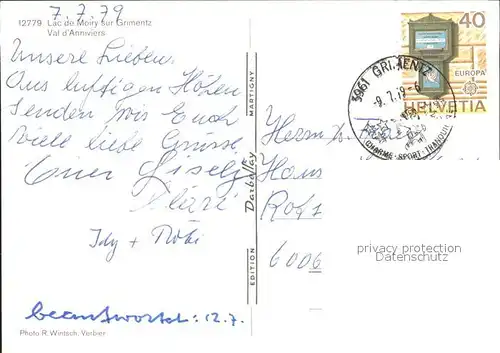 7.7.79
12779 Lac de Moiry sur Grimentz
Val d'Anniviers
Unsere Lieben.
Aus luftigen Höhen
senden wir Euch
viele liebe Grüsse
Eure Lisely
Idy + Röbi
beantwortet: 12.7.
Photo R. Wintsch, Verbier
EDITION Darbellay MARTIGNY
40
EUROPA
HELVETIA
3961 GRIMENTZ
-9.7.79-6
CHARME - SPORT - TRADITION
Herrn u.
Hans
6006
privacy protection
Datenschutz